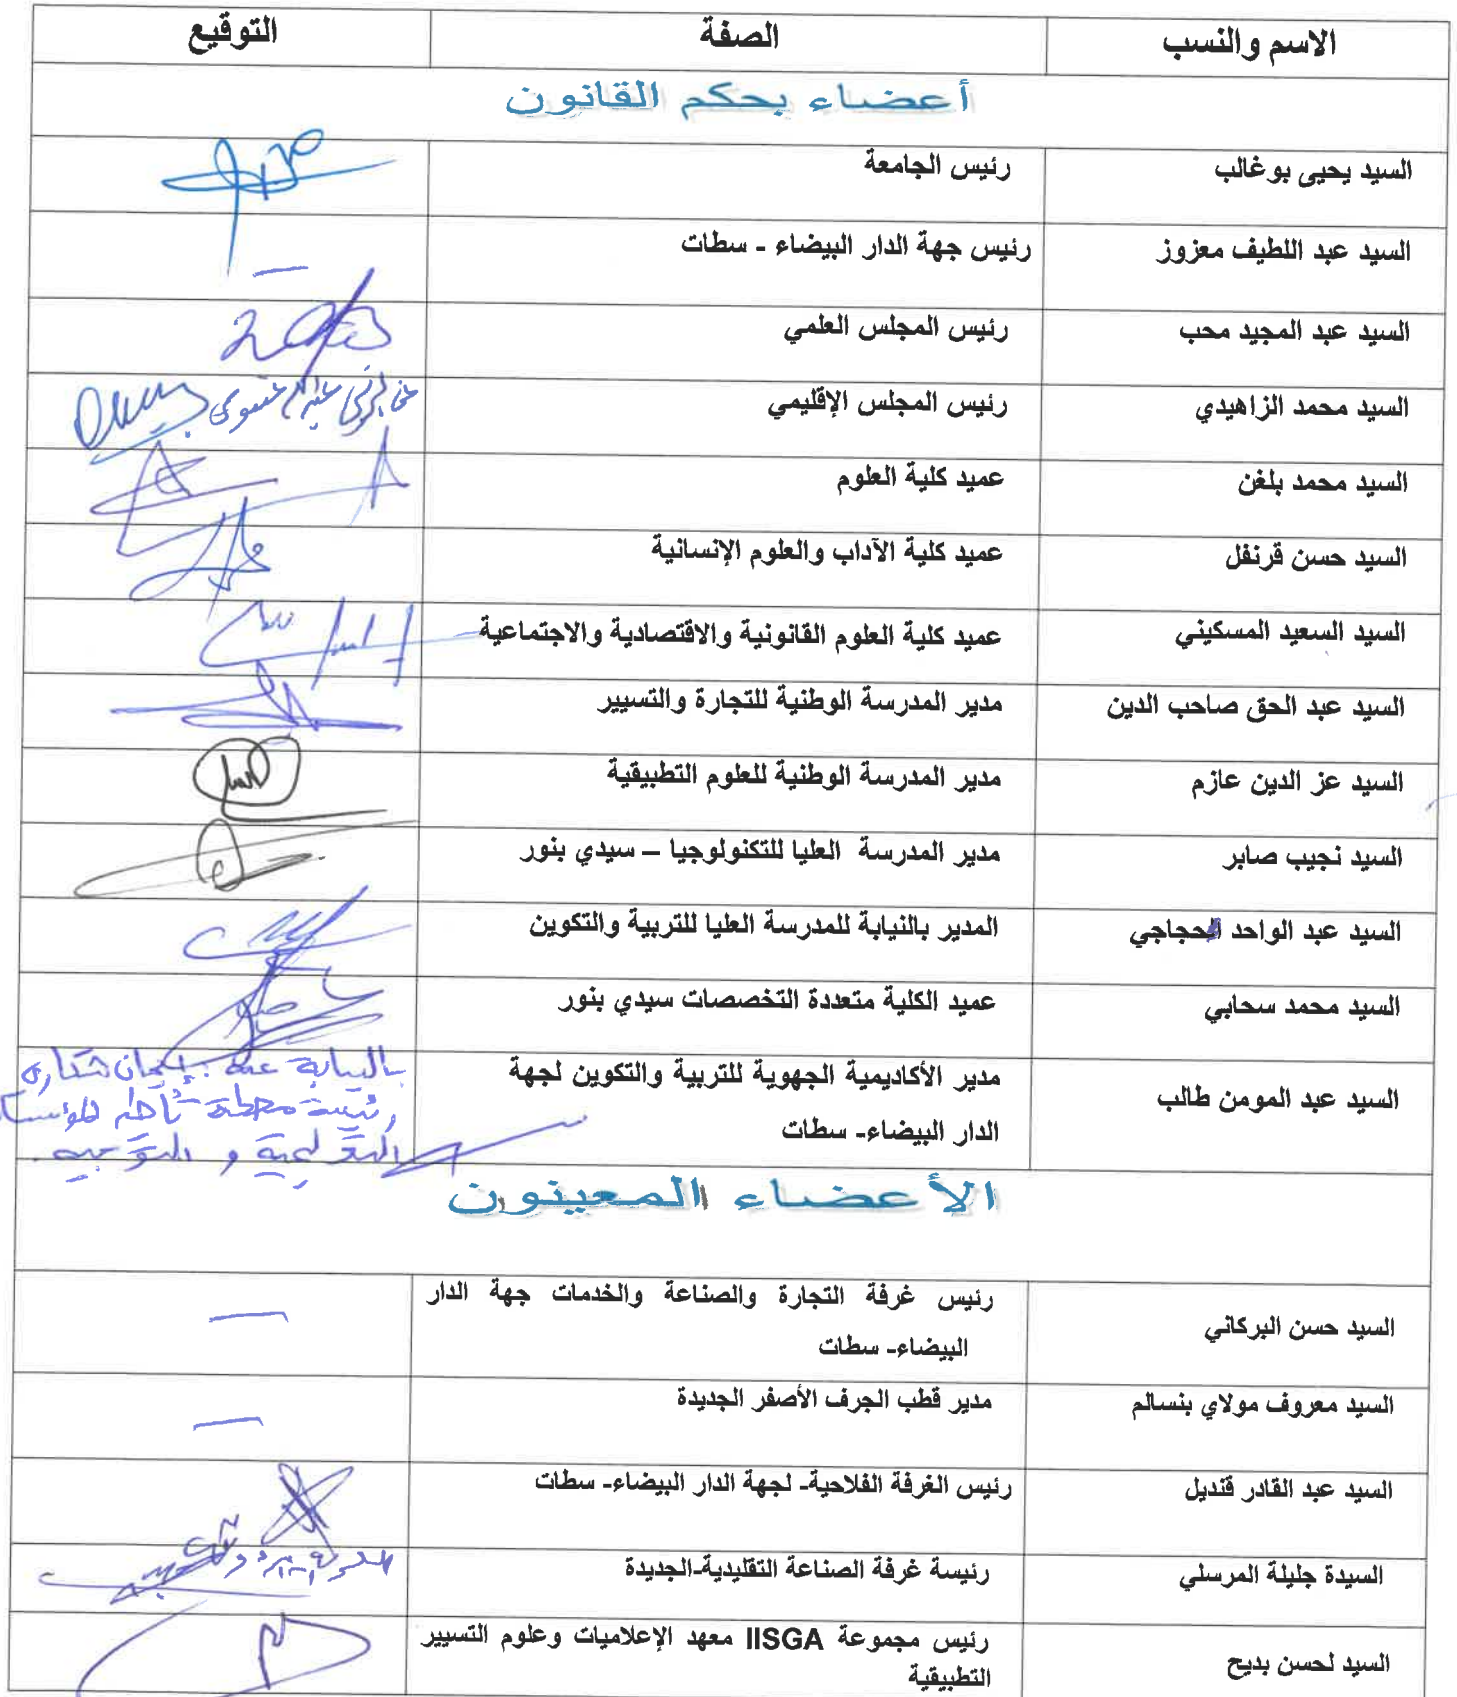 الاسم والنسب الصفة التوقيع
أعضاء بحكم القانون
السيد يحيى بوغالب رئيس الجامعة
السيد عبد اللطيف معزوز رئيس جهة الدار البيضاء - سطات
السيد عبد المجيد محب رئيس المجلس العلمي
السيد محمد الزاهيدي رئيس المجلس الإقليمي
السيد محمد بلغن عميد كلية العلوم
السيد حسن قرنفل عميد كلية الآداب والعلوم الإنسانية
السيد السعيد المسكيني عميد كلية العلوم القانونية والاقتصادية والاجتماعية
السيد عبد الحق صاحب الدين مدير المدرسة الوطنية للتجارة والتسيير
السيد عز الدين عازم مدير المدرسة الوطنية للعلوم التطبيقية
السيد نجيب صابر مدير المدرسة العليا للتكنولوجيا – سيدي بنور
السيد عبد الواحد الحجاجي المدير بالنيابة للمدرسة العليا للتربية والتكوين
السيد محمد سحابي عميد الكلية متعددة التخصصات سيدي بنور
السيد عبد المومن طالب مدير الأكاديمية الجهوية للتربية والتكوين لجهة
الدار البيضاء- سطات
بالنيابة عنه :
رئيسة مصلحة
و التوجيه.
الأعضاء المعينون
السيد حسن البركاني رئيس غرفة التجارة والصناعة والخدمات جهة الدار
البيضاء- سطات
السيد معروف مولاي بنسالم مدير قطب الجرف الأصفر الجديدة
السيد عبد القادر قنديل رئيس الغرفة الفلاحية- لجهة الدار البيضاء- سطات
السيدة جليلة المرسلي رئيسة غرفة الصناعة التقليدية-الجديدة
السيد لحسن بديح رئيس مجموعة IISGA معهد الإعلاميات وعلوم التسيير
التطبيقية